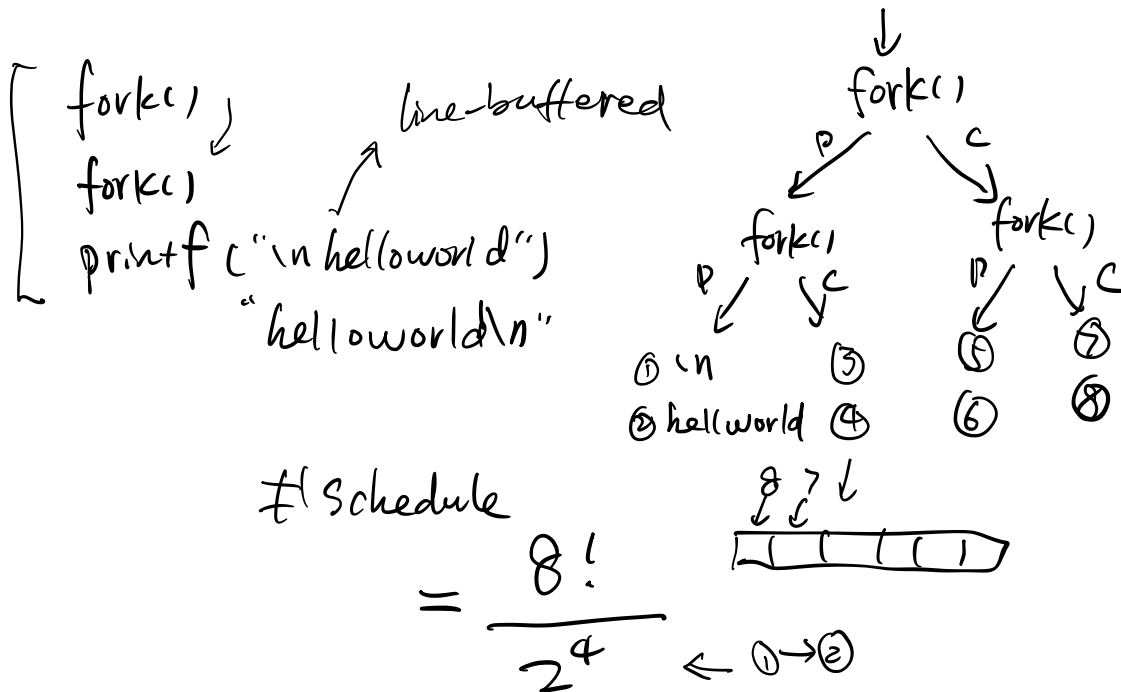 fork()
fork()
printf ("\n helloworld")
"helloworld\n"
line-buffered
fork()
P C
fork() fork()
P C P C
① \n ③ ⑤ ⑦
② hellworld ④ ⑥ ⑧
8 7
# Schedule
= 8!
2^4
① → ②